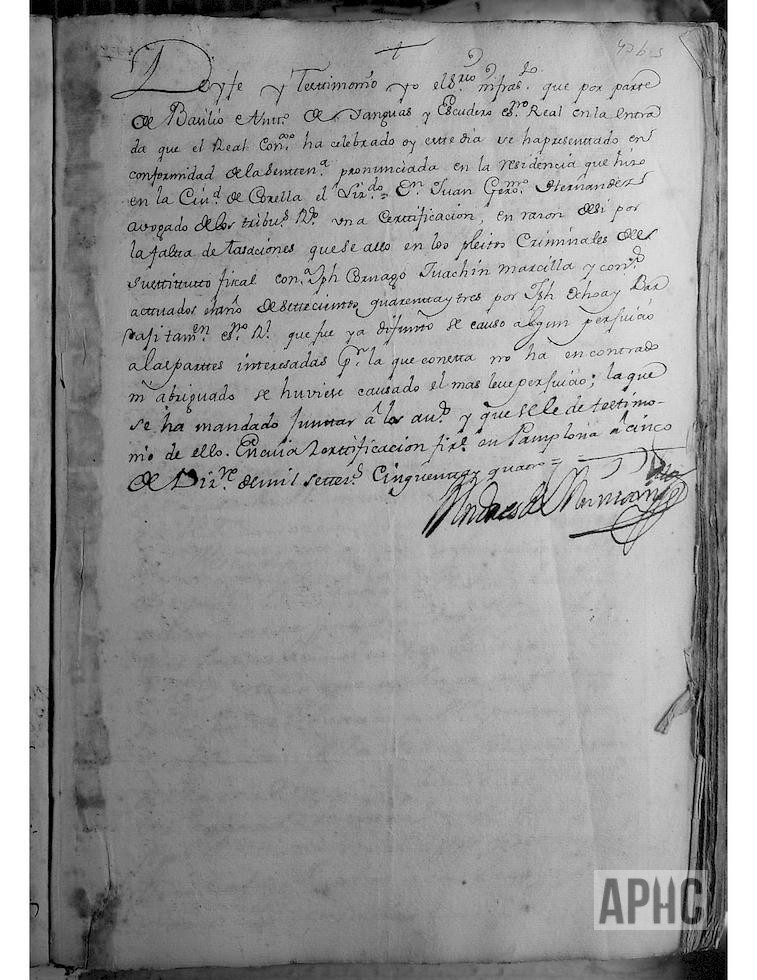 +
42 bis
Doyfe y Testimonio yo el Srio infrasto que por parte
de Basilio Antto de Yanguas y Escudero esno Real en la entra
da que el Real Conejo ha celebrado oy este dia se ha presenttado en
conformidad de la Sentena pronunciada en la residencia que hizo
en la Ciud de Corella el Lizdo Dn Juan Germo Hernandez
avogado de los tribus Rs una Certtificacion, en razon de si por
la faltta de tasaciones que se allo en los pleitos Criminales del
susttitutto fiscal cona Jph Cornago Juachin marcilla y cons
acttuados el año de settecienttos quarentta y tres por Jph Ochoa y
esno Rl que fue ya difuntto se causo algun perjuicio
a las parttes interesadas pr la que constta no ha encontrado
ni abriguado se huviese causado el mas leve perjuicio; la que
se ha mandado junttar a los auts y que se le de testimo-
nio de ello. En cuia Zerttificacion firé en Pamplona a cinco
de Dizre de mil settes Cinquentta y quatro =
APHC